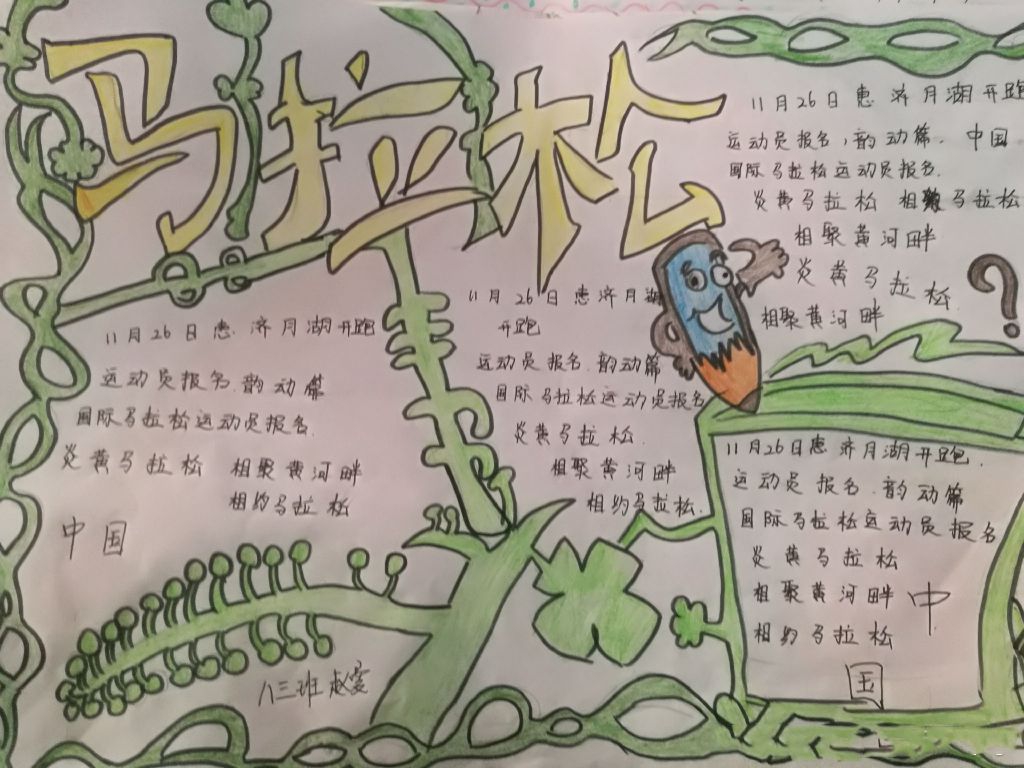 马拉松
11月26日惠济月湖开跑
运动员报名,韵动篇. 中国
国际马拉松运动员报名.
炎黄马拉松 相聚马拉松
相聚黄河畔
炎黄马拉松.
相聚黄河畔
?
11月26日惠.济月湖开跑
运动员报名.韵动篇
国际马拉松运动员报名.
炎黄马拉松 相聚黄河畔
相约马拉松
中国
11月26日惠济月湖
开跑
运动员报名.韵动篇
国际马拉松运动员报名
炎黄马拉松.
相聚黄河畔
相约马拉松.
11月26日惠济月湖开跑.
运动员报名.韵动篇
国际马拉松运动员报名
炎黄马拉松
相聚黄河畔 中
相约马拉松
国
八三班